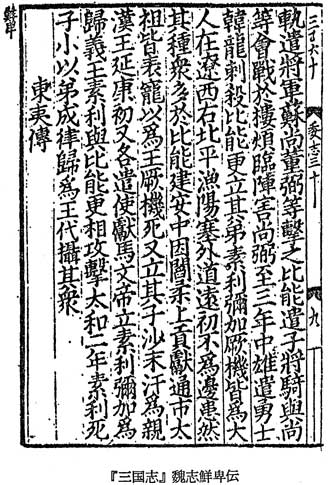 鮮卑
三百六十
魏志三十
九
軌遣將軍蘇尚董弼等擊之比能遣子將騎與尚
等會戰於樓煩臨陣害尚弼至三年中雄遣勇士
韓龍刺殺比能更立其弟素利彌加厥機皆為大
人在遼西右北平漁陽塞外道遠初不為邊患然
其種眾多於比能建安中因閻柔上貢獻通市太
祖皆表寵以為王厥機死又立其子沙末汗為親
漢王延康初又各遣使獻馬文帝立素利彌加為
歸義王素利與比能更相攻擊太和二年素利死
子小以弟成律歸為王代攝其眾
東夷傳
『三国志』魏志鮮卑伝